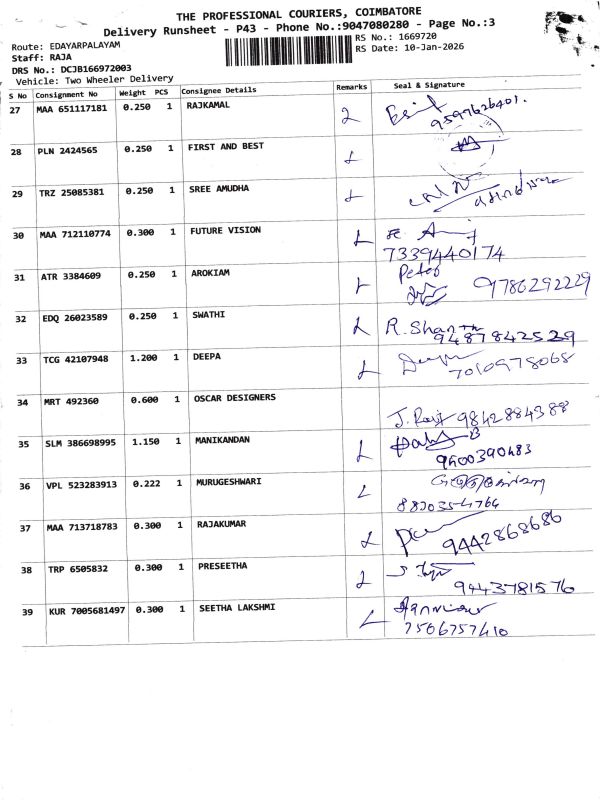 THE PROFESSIONAL COURIERS, COIMBATORE
Delivery Runsheet - P43 - Phone No.:9047080280 - Page No.:3
Route: EDAYARPALAYAM
RS No.: 1669720
Staff: RAJA
RS Date: 10-Jan-2026
DRS No.: DCJB166972003
Vehicle: Two Wheeler Delivery
S No Consignment No Weight PCS Consignee Details Remarks Seal & Signature
27 MAA 651117181 0.250 1 RAJKAMAL
9597626401.
28 PLN 2424565 0.250 1 FIRST AND BEST
29 TRZ 25085381 0.250 1 SREE AMUDHA
30 MAA 712110774 0.300 1 FUTURE VISION
7339440174
31 ATR 3384609 0.250 1 AROKIAM Peter
9786292229
32 EDQ 26023589 0.250 1 SWATHI R. Shanthi
9487842529
33 TCG 42107948 1.200 1 DEEPA
7010978068
34 MRT 492360 0.600 1 OSCAR DESIGNERS
9842884388
35 SLM 386698995 1.150 1 MANIKANDAN
9400390483
36 VPL 523283913 0.222 1 MURUGESHWARI
37 MAA 713718783 0.300 1 RAJAKUMAR
9442868686
38 TRP 6505832 0.300 1 PRESEETHA
9443781576
39 KUR 7005681497 0.300 1 SEETHA LAKSHMI
7506757410